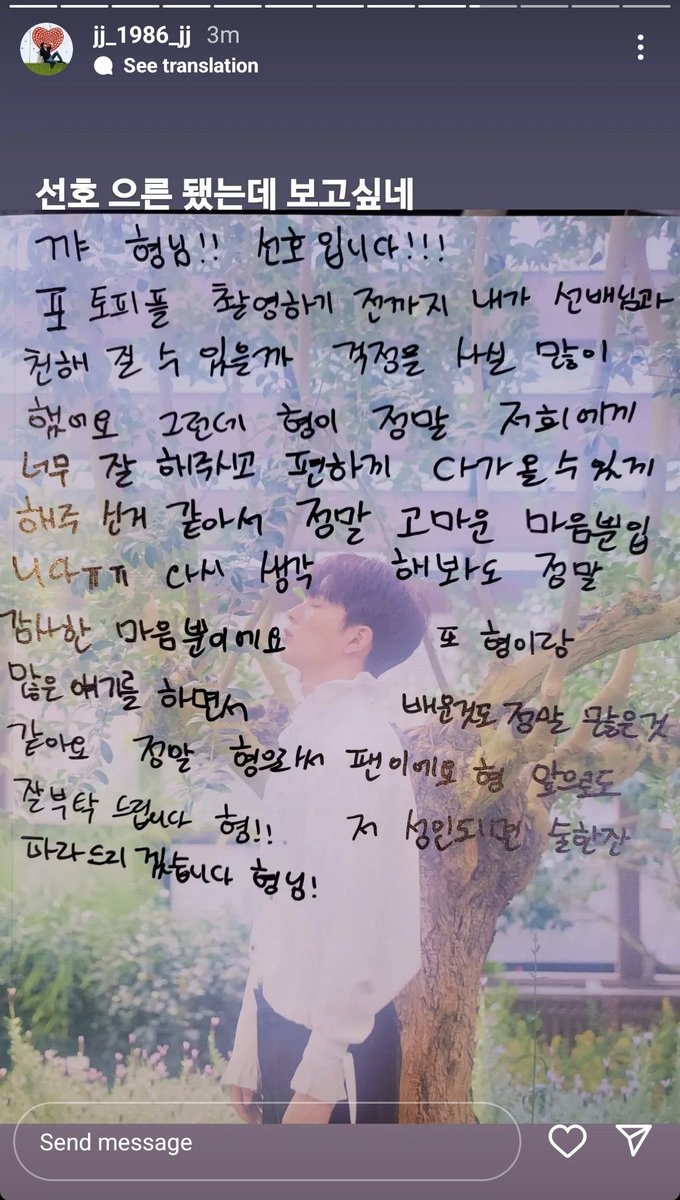 jj_1986_jj 3m
See translation
선호 으른 됐는데 보고싶네
꺄 형님!! 선호입니다!!!
포토피플 촬영하기 전까지 내가 선배님과
친해 질 수 있을까 걱정을 사실 많이
했어요 그런데 형이 정말 저희에게
너무 잘 해주시고 편하게 다가올수있게
해주신거 같아서 정말 고마운 마음뿐입
니다ㅠㅠ 다시 생각 해봐도 정말
감사한 마음뿐이에요 또 형이랑
많은 얘기를 하면서 배운것도 정말 많은것
같아요 정말 형으로써 팬이에요 형 앞으로도
잘부탁 드립니다 형!! 저 성인되면 술한잔
따라드리겠습니다 형님!
Send message